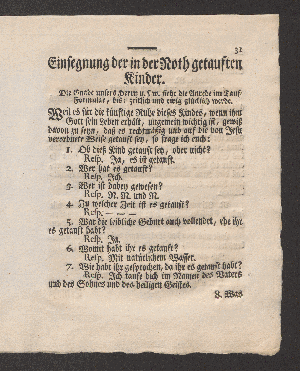 31
Einsegnung der in der Noth getauften
Kinder.
Die Gnade unsers Herrn u. s. w. siehe die Anrede im Tauf-
Formular, bis: zeitlich und ewig glücklich werde.
Weil es für die künftige Ruhe dieses Kindes, wenn ihm
Gott sein Leben erhält, ungemein wichtig ist, gewiß
davon zu seyn, daß es rechtmäßig und auf die von Jesu
verordnete Weise getauft sey, so frage ich euch:
1. Ob dieß Kind getauft sey, oder nicht?
Resp. Ja, es ist getauft.
2. Wer hat es getauft?
Resp. Ich.
3. Wer ist dabey gewesen?
Resp. N. N. und N.
4. Zu welcher Zeit ist es getauft?
Resp. — — —
5. War die leibliche Geburt auch vollendet, ehe ihr
es getauft habt?
Resp. Ja.
6. Womit habt ihr es getauft?
Resp. Mit natürlichem Wasser.
7. Wie habt ihr gesprochen, da ihr es getauft habt?
Resp. Ich taufe dich im Namen des Vaters
und des Sohnes und des heiligen Geistes.
8. Was